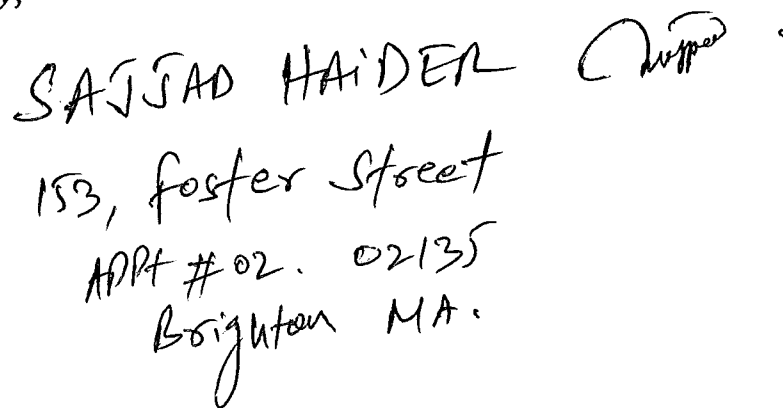 SAJJAD HAIDER
153, foster street
APPt #02. 02135
Brighton MA.